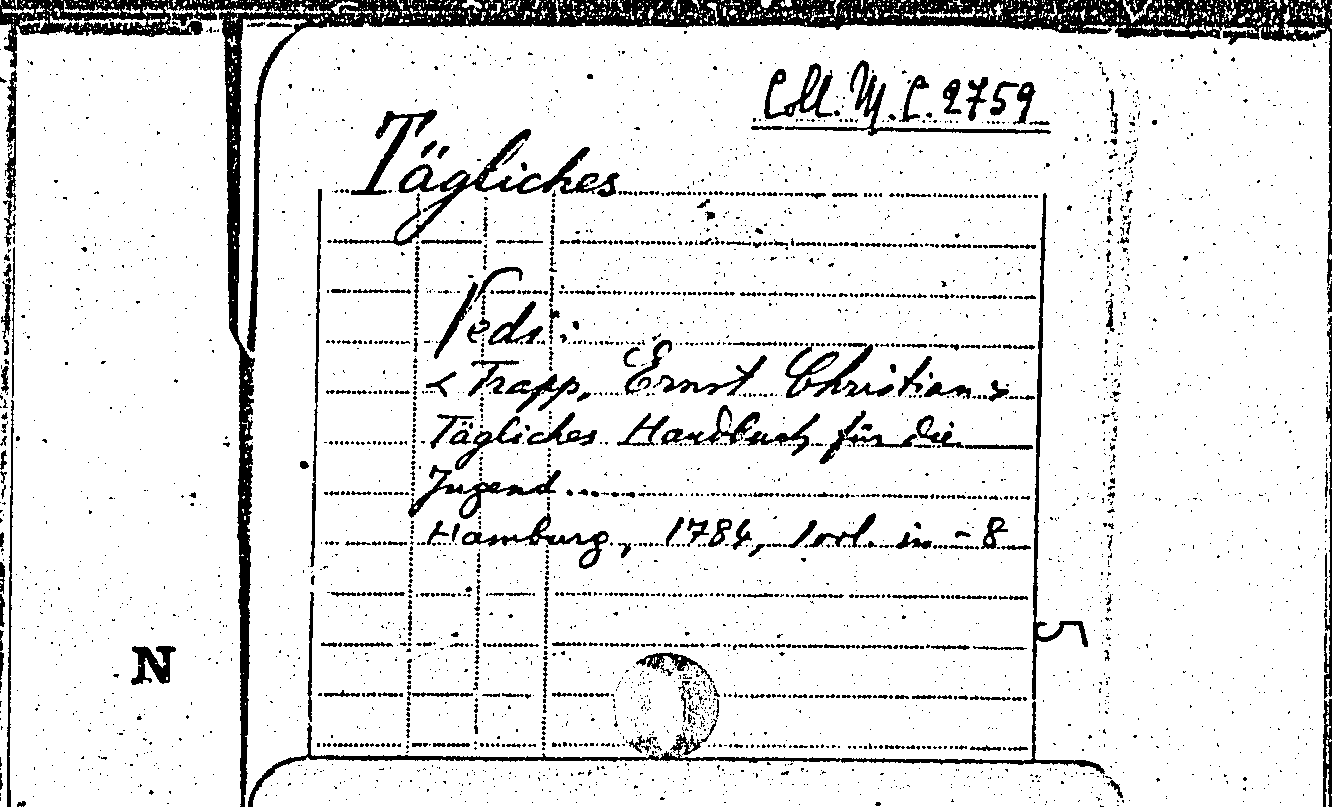 Coll. M. C. 2759
Tägliches
Vedi:
< Trapp, Ernst Christian >
Tägliches Handbuch für die
Jugend......
Hamburg, 1784, 1 vol. in - 8
5
N